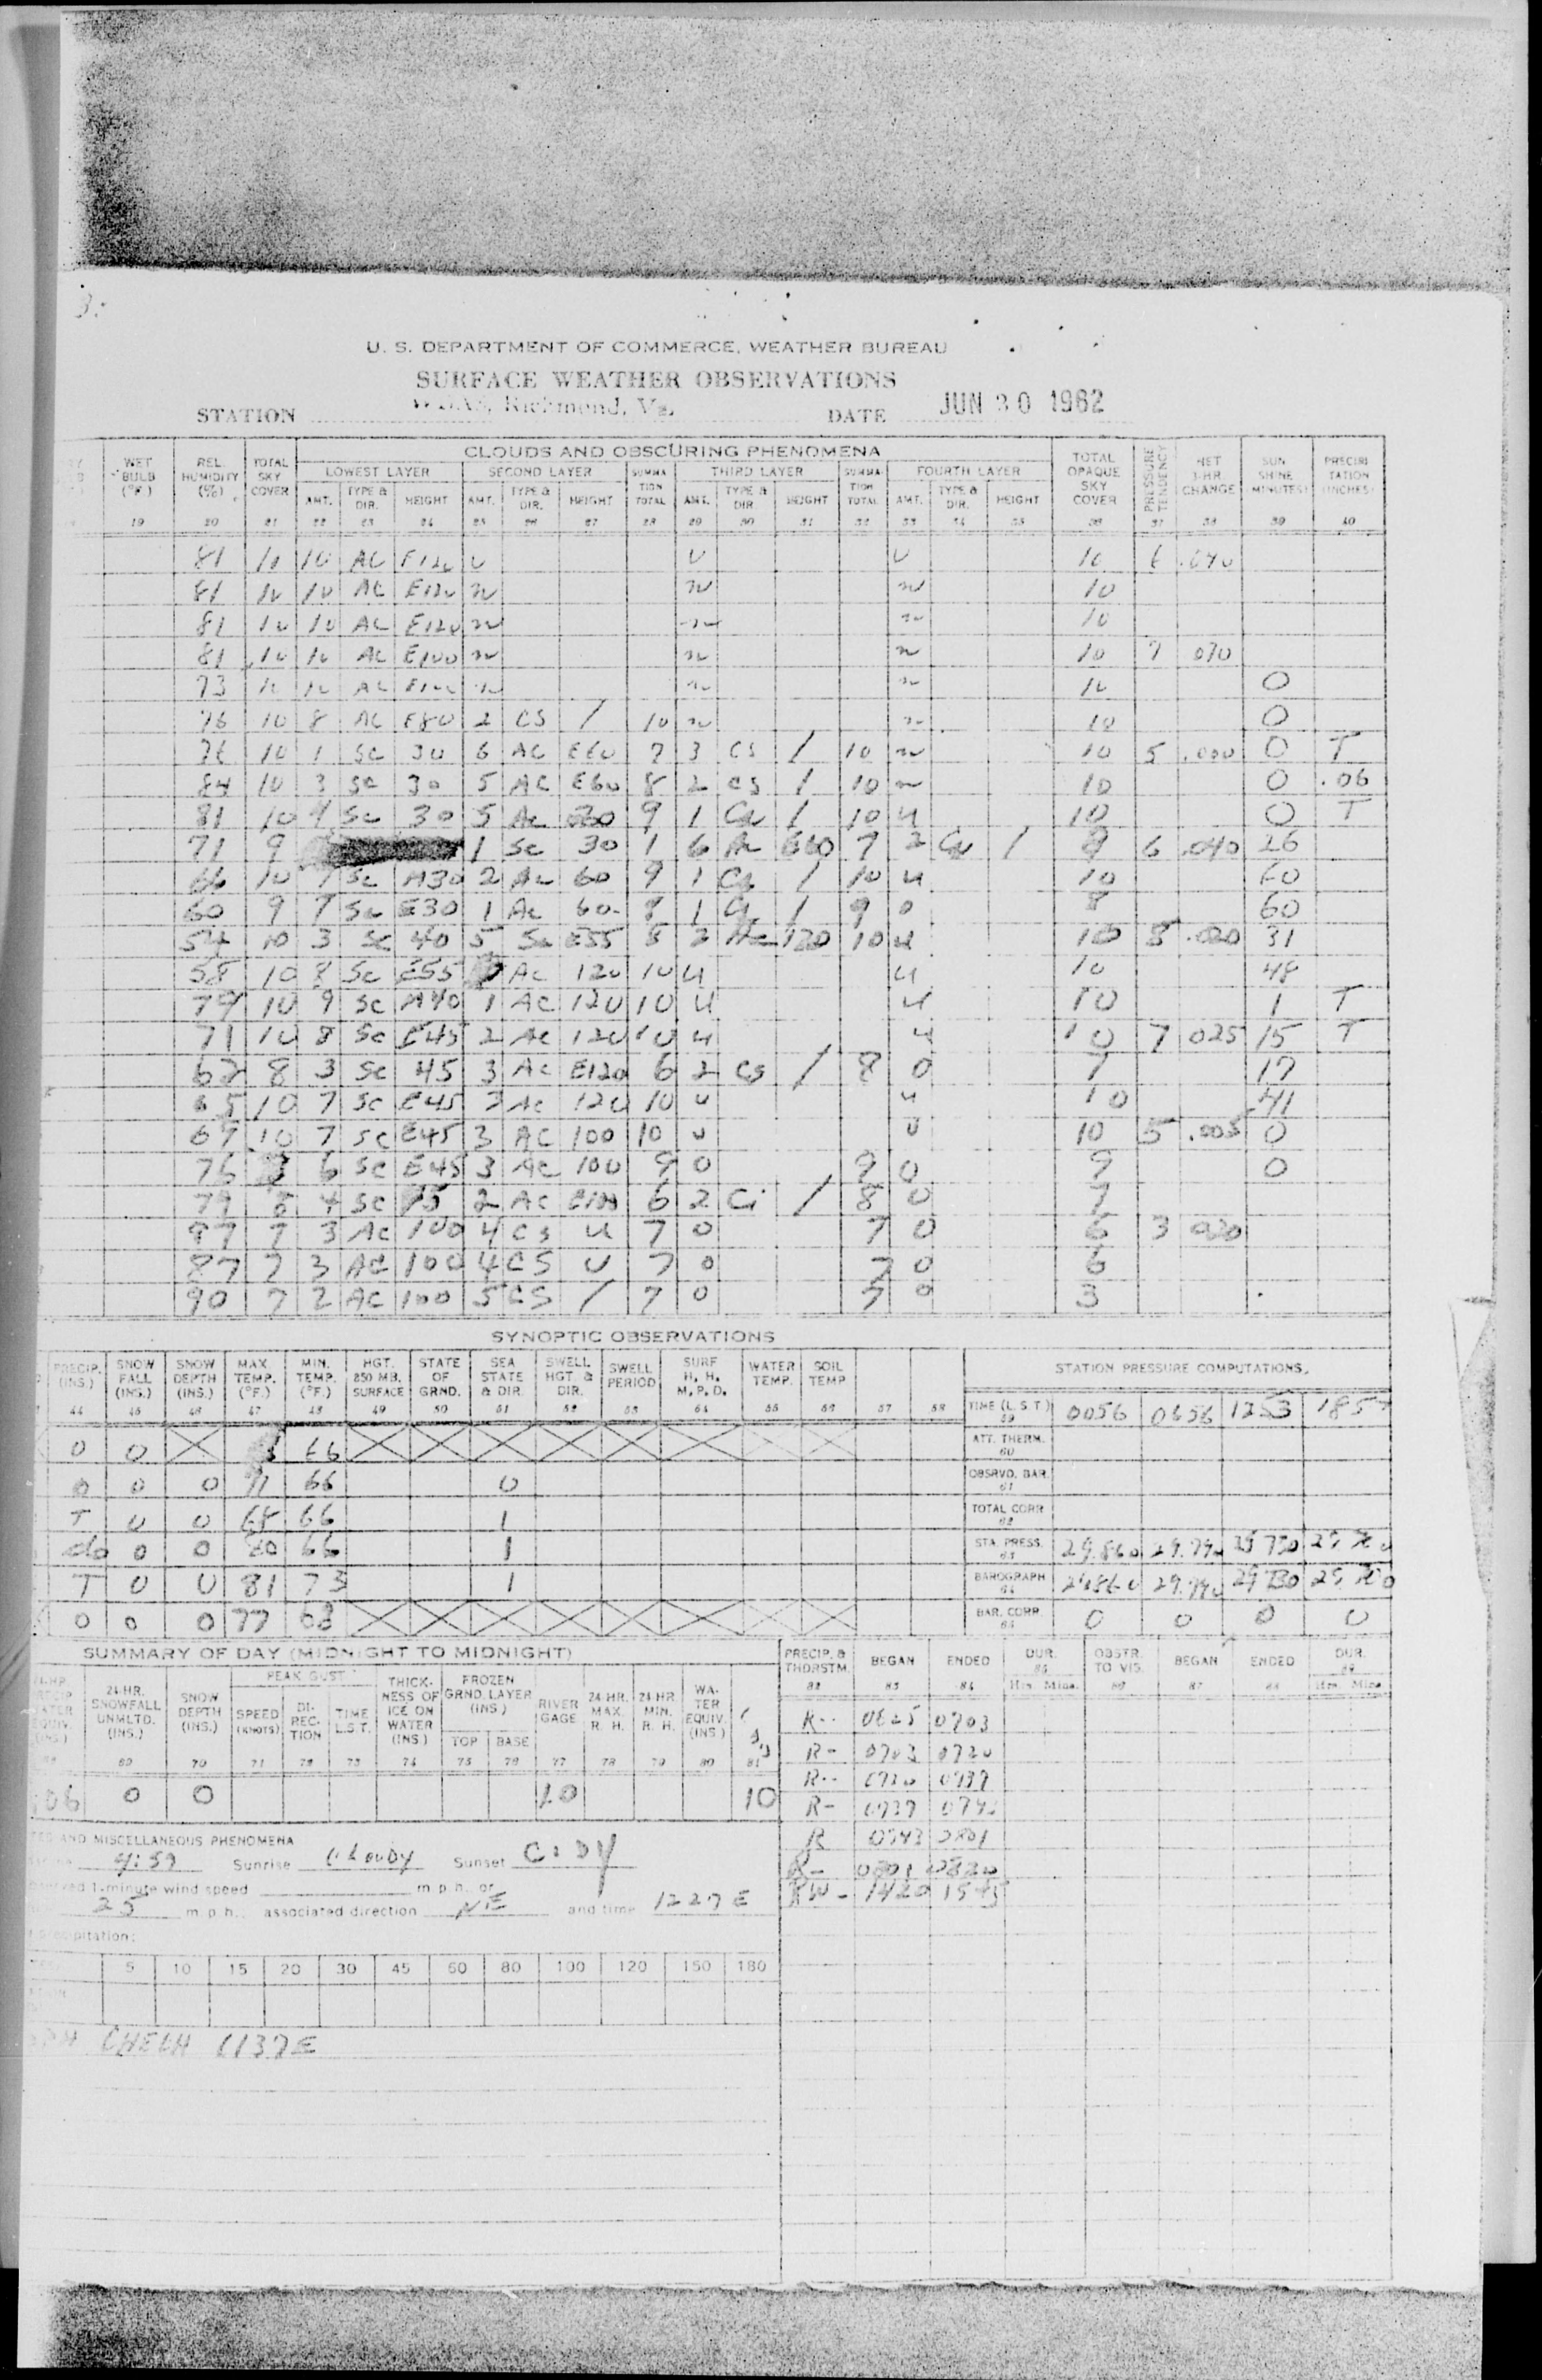 U. S. DEPARTMENT OF COMMERCE, WEATHER BUREAU
SURFACE WEATHER OBSERVATIONS
STATION Richmond, Va. DATE JUN 30 1962
CLOUDS AND OBSCURING PHENOMENA
WET BULB (°F.) REL. HUMIDITY (%) TOTAL SKY COVER LOWEST LAYER SECOND LAYER SUMMATION TOTAL THIRD LAYER SUMMATION TOTAL FOURTH LAYER TOTAL OPAQUE SKY COVER PRESSURE TENDENCY NET 3-HR CHANGE SUNSHINE (MINUTES) PRECIPITATION (INCHES)
AMT. TYPE & DIR. HEIGHT AMT. TYPE & DIR. HEIGHT AMT. TYPE & DIR HEIGHT AMT. TYPE & DIR. HEIGHT
19 20 21 22 23 24 25 26 27 28 29 30 31 32 33 34 35 36 37 38 39 40
81 10 10 AC E120 U U U 10 6
81 10 10 AC E120 10
81 10 10 AC E120 10
81 10 10 AC E100 10 7 030
73 10 10 AC 10 0
76 10 8 AC E80 2 CS / 10 10 0
76 10 1 SC 30 6 AC E60 7 3 CS / 10 10 5 .000 0 T
84 10 3 SC 30 5 AC E60 8 2 CS / 10 10 0 .06
81 10 4 Sc 30 5 Ac 9 1 / 10 U 10 0 T
71 9 1 Sc 30 1 6 Ac E60 7 2 / 9 6 .040 26
66 10 7 Sc A30 2 Ac 60 9 1 / 10 U 10 60
60 9 7 Sc E30 1 Ac 60 8 1 / 9 0 8 60
54 10 3 Sc 40 5 Sc E55 8 2 Ac 120 10 U 10 5 .020 31
58 10 8 Sc E55 AC 120 10 U U 10 48
79 10 9 SC A40 1 AC 120 10 U U 10 1 T
71 10 8 SC E45 2 AC 120 10 U U 10 7 025 15 T
62 8 3 SC 45 3 AC E120 6 2 CS / 8 0 7 17
65 10 7 SC E45 3 AC 120 10 U U 10 41
67 10 7 SC E45 3 AC 100 10 U U 10 5 .005 0
76 6 SC E45 3 AC 100 9 0 9 0 9 0
79 8 4 SC 2 AC 6 2 Ci / 8 0 7
87 7 3 AC 100 4 CS U 7 0 7 0 6 3 020
87 7 3 AC 100 4 CS U 7 0 7 0 6
90 7 2 AC 100 5 CS / 7 0 7 0 3
SYNOPTIC OBSERVATIONS
PRECIP. (INS.) SNOW FALL (INS.) SNOW DEPTH (INS.) MAX. TEMP. (°F.) MIN. TEMP. (°F.) HGT. 850 MB. SURFACE STATE OF GRND. SEA STATE & DIR. SWELL HGT. & DIR. SWELL PERIOD SURF H. H. M. P. D. WATER TEMP. SOIL TEMP STATION PRESSURE COMPUTATIONS
44 45 46 47 48 49 50 51 52 53 54 55 56 57 58 TIME (L.S.T.) 59 0056 0656 1253
0 0 66 ATT. THERM. 60
0 0 0 71 66 0 OBSRVD. BAR. 61
T 0 0 68 66 1 TOTAL CORR 62
0 0 80 66 1 STA. PRESS. 63 29.860 29.790
T 0 0 81 73 1 BAROGRAPH 64 29.860 29.790 29.730
0 0 0 77 68 BAR. CORR. 65 0 0 0 0
SUMMARY OF DAY (MIDNIGHT TO MIDNIGHT)
24-HR. SNOWFALL UNMLTD. (INS.) SNOW DEPTH (INS.) PEAK GUST SPEED (KNOTS) DIRECTION TIME L.S.T. THICKNESS OF ICE ON WATER (INS.) FROZEN GRND. LAYER (INS.) TOP BASE RIVER GAGE 24-HR. MAX. R. H. 24-HR MIN. R. H. WATER EQUIV. (INS.)
69 70 71 72 73 74 75 76 77 78 79 80 81
06 0 0 10
PRECIP. & THDRSTM. BEGAN ENDED DUR. Hrs. Mins. OBSTR. TO VIS. BEGAN ENDED DUR. Hrs. Mins
82 83 84 85 86 87 88 89
R-- 0625 0703
R- 0703 0720
R-- 0720 0737
R- 0737 0743
R 0743 0801
R- 0801 0820
RW- 1420
AND MISCELLANEOUS PHENOMENA
4:59 Sunrise Cloudy Sunset CLDY
1-minute wind speed m.p.h. or
25 m.p.h. associated direction NE and time 1227 E
5 10 15 20 30 45 60 80 100 120 150 180
1137E